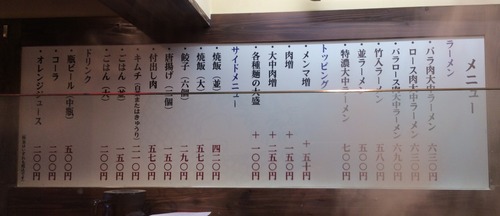 メニュー
ラーメン
・バラ肉大中ラーメン 六三〇
・ロース肉大中ラーメン 六三〇
・バラロース大中ラーメン 六九〇
・竹入ラーメン 五八〇
・並ラーメン 五〇〇
・特濃大中ラーメン 七〇〇
トッピング
・メンマ増 +五十〇
・肉増 +一五〇
・大中肉増 +二五〇
・各種麺の大盛 +一〇〇
サイドメニュー
・焼飯（並） 四二〇
・焼飯（大） 五七〇
・餃子（六個） 二九〇
・唐揚げ（三個） 一五〇
・付出し肉 五七〇
・キムチ（白菜またはきゅうり） 二一〇
・ごはん（並） 一五〇
・ごはん（大） 二〇〇
ドリンク
・瓶ビール（中瓶） 五〇〇
・コーラ 二〇〇
・オレンジジュース 二〇〇